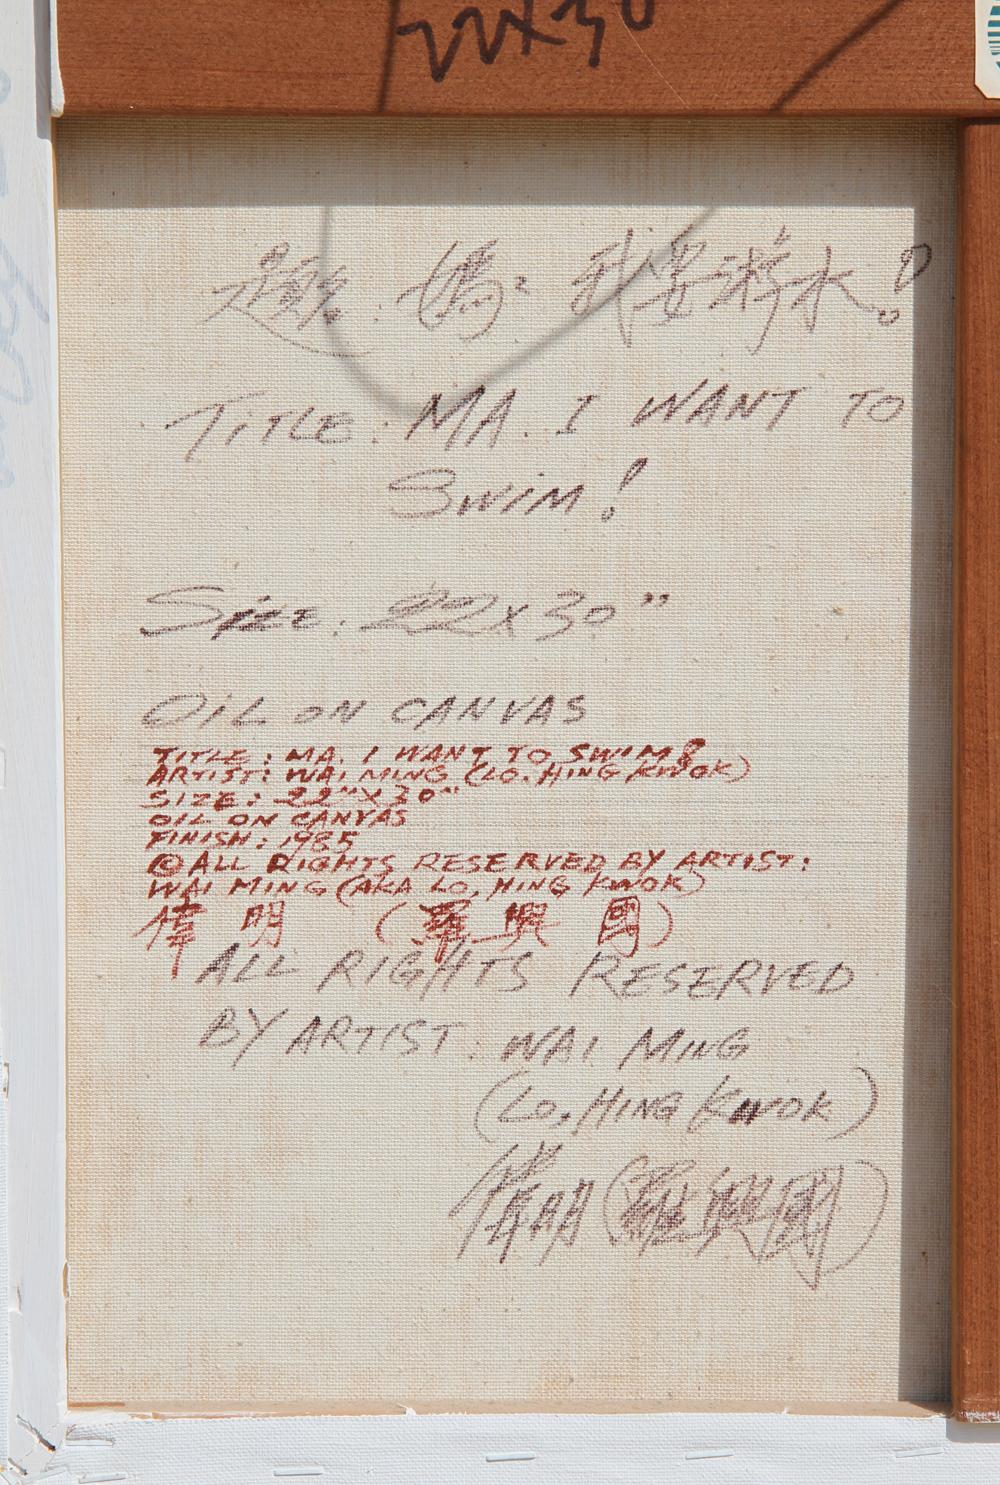 22x30
題名: 媽: 我要游水!
TITLE: MA. I WANT TO
SWIM!
SIZE: 22x30"
OIL ON CANVAS
TITLE: MA. I WANT TO SWIM!
ARTIST: WAI MING (LO. HING KWOK)
SIZE: 22"X30"
OIL ON CANVAS
FINISH: 1985
©ALL RIGHTS RESERVED BY ARTIST:
WAI MING (AKA LO, HING KWOK)
偉明 (羅興國)
ALL RIGHTS RESERVED
BY ARTIST: WAI MING
(LO, HING KWOK)
偉明 (羅興國)